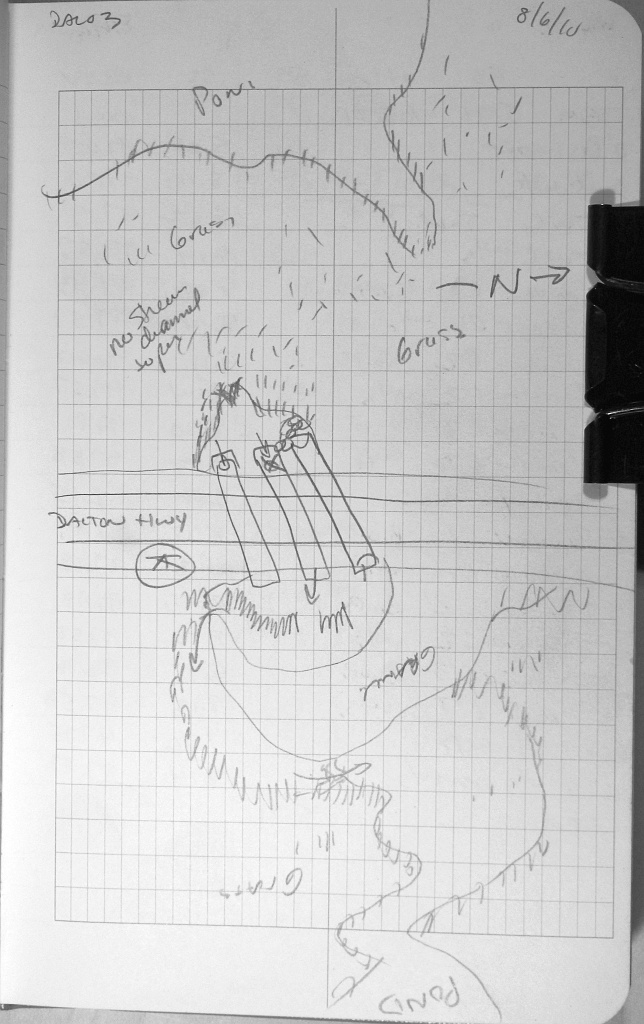 DAL03
8/6/10
Pond
Grass
N
Grass
no stream
channel
DALTON HWY
Gravel
Grass
POND